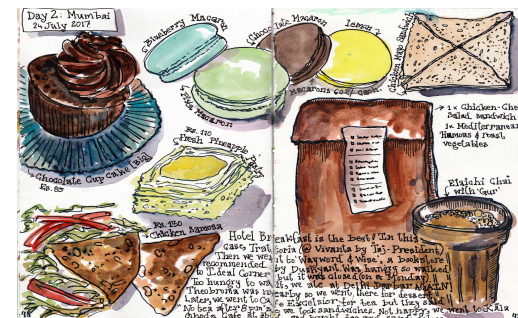 Day 2: Mumbai
24 July 2017
Blueberry Macaron
Chocolate Macaron
lemon
Macaron
Macarons 60/- each
Chicken Mayo Sandwich
Chocolate Cup Cake (Big)
Rs. 85
Rs. 110
Fresh Pineapple Pastry
→ 1x Chicken-Che
Salad sandwich
1x Mediterranean
Humus & roast
vegetables
Elaichi Chai
with 'Gur'
Rs. 130
Chicken Samosa
Hotel Breakfast is the best! In this
case, (@ Vivanta by Taj-President)
Then we went to 'Wayword & Wise', a bookstore
recommended by Dushyant. Was hungry so walked
to Ideal Corner but it was closed (on a Monday)
Too hungry to we ate at Delhi Darbar AGAIN!
Theobroma was nearby so we went there for dessert.
Later, we went to Excelsior for tea but they said
No tea after 8pm we took sandwiches. Not happy, we went to Kala